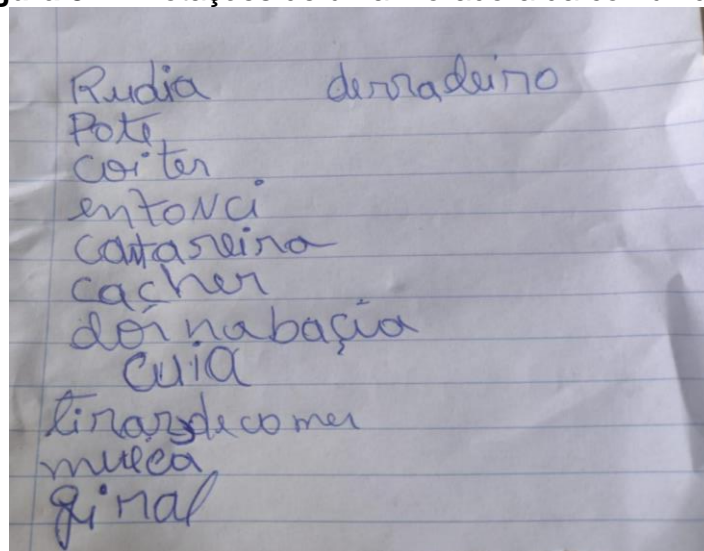 Rudia derradeiro
Pote
coiter
entonci
cantareira
cacher
dor na bacia
cuia
tirar de comer
mueca
giral